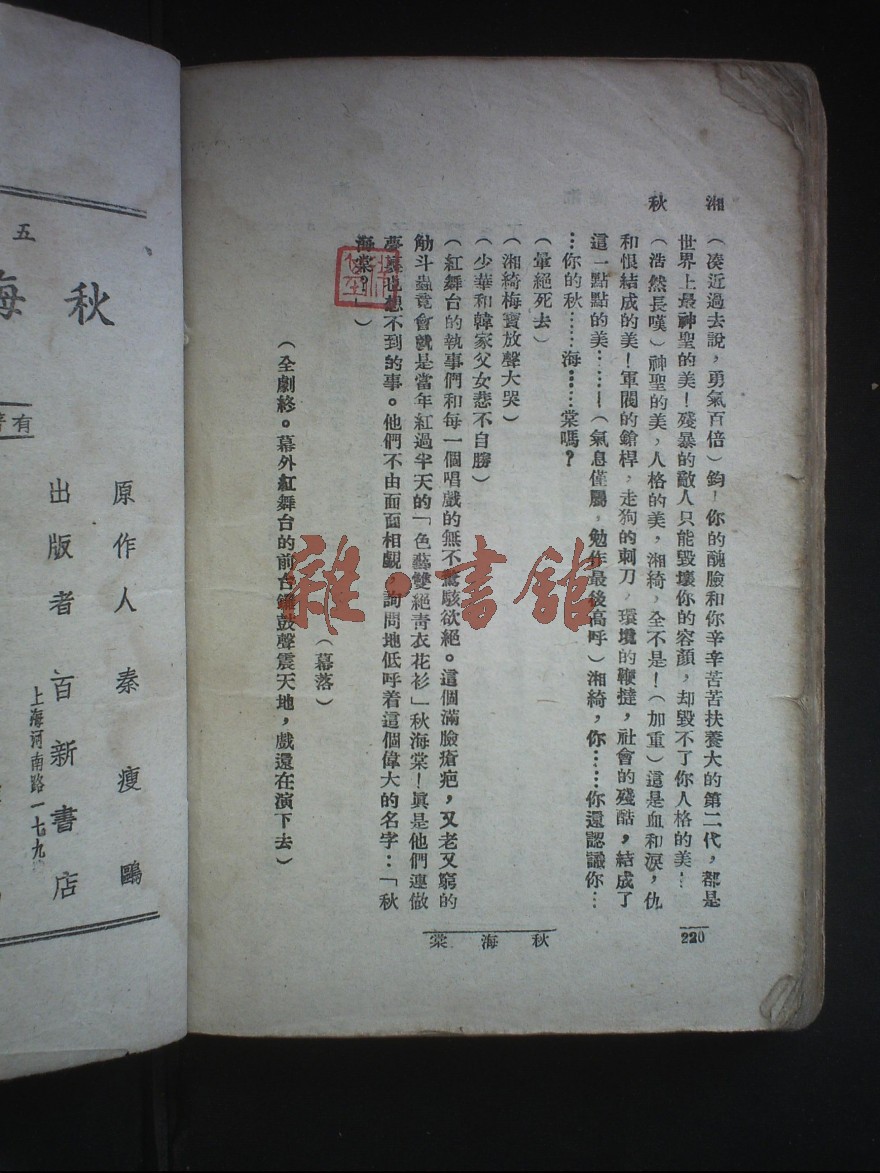 湘　（湊近過去說，勇氣百倍）鈞！你的醜臉和你辛辛苦苦扶養大的第二代，都是
世界上最神聖的美！殘暴的敵人只能毀壞你的容顏，却毀不了你人格的美！
秋　（浩然長嘆）神聖的美，人格的美，湘綺，全不是！（加重）這是血和淚，仇
和恨結成的美！軍閥的鎗桿，走狗的刺刀，環境的鞭撻，社會的殘酷，結成了
這一點點的美……！（氣息僅屬，勉作最後高呼）湘綺，你……你還認識你…
…你的秋……海……棠嗎？
（暈絕死去）
（湘綺梅寶放聲大哭）
（少華和韓家父女悲不自勝）
（紅舞台的執事們和每一個唱戲的無不驚駭欲絕。這個滿臉瘡疤，又老又窮的
觔斗蟲竟會就是當年紅過半天的「色藝雙絕靑衣花衫」秋海棠！眞是他們連做
夢也想不到的事。他們不由面面相覷，詢問地低呼着這個偉大的名字：「秋
海棠？」）
（幕落）
（全劇終。幕外紅舞台的前台鑼鼓聲震天地，戲還在演下去）
秋海棠
220
雜·書館
五
秋海
有
原作人秦瘦鷗
出版者百新書店
上海河南路一七九